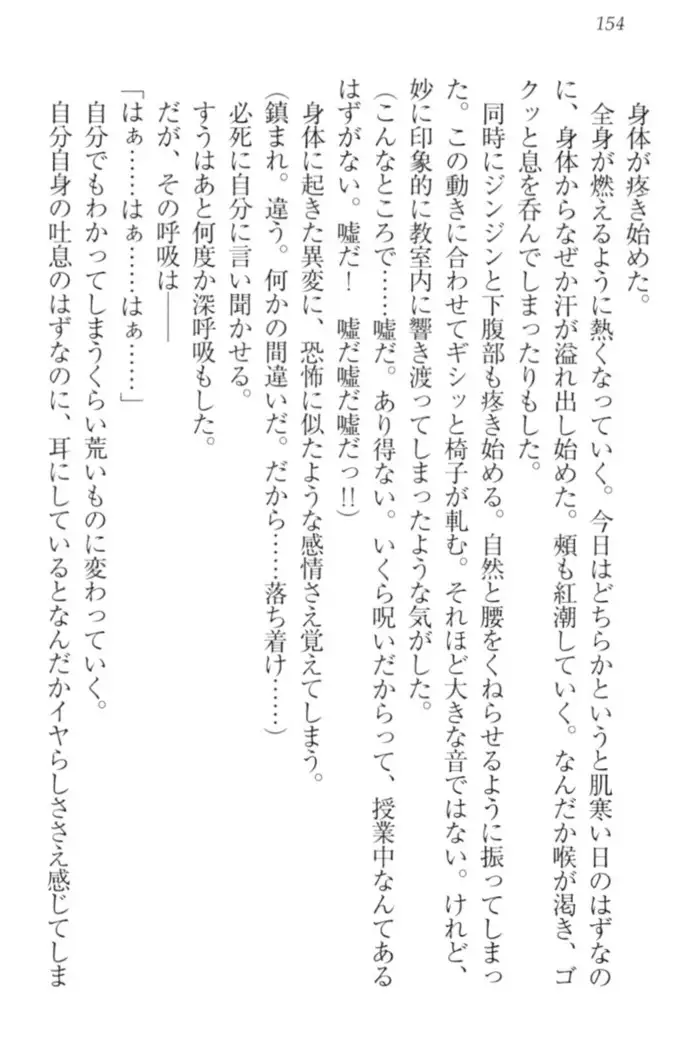 154
身体が疼き始めた。
全身が燃えるように熱くなっていく。今日はどちらかというと肌寒い日のはずなの
に、身体からなぜか汗が溢れ出し始めた。頬も紅潮していく。なんだか喉が渇き、ゴ
クッと息を呑んでしまったりもした。
同時にジンジンと下腹部も疼き始める。自然と腰をくねらせるように振ってしまっ
た。この動きに合わせてギシッと椅子が軋む。それほど大きな音ではない。けれど、
妙に印象的に教室内に響き渡ってしまったような気がした。
(こんなところで……嘘だ。あり得ない。いくら呪いだからって、授業中なんてある
はずがない。嘘だ！　嘘だ嘘だ嘘だっ!!)
身体に起きた異変に、恐怖に似たような感情さえ覚えてしまう。
(鎮まれ。違う。何かの間違いだ。だから……落ち着け……)
必死に自分に言い聞かせる。
すうはあと何度か深呼吸もした。
だが、その呼吸は――
「はぁ……はぁ……はぁ……」
自分でもわかってしまうくらい荒いものに変わっていく。
自分自身の吐息のはずなのに、耳にしているとなんだかイヤらしささえ感じてしま